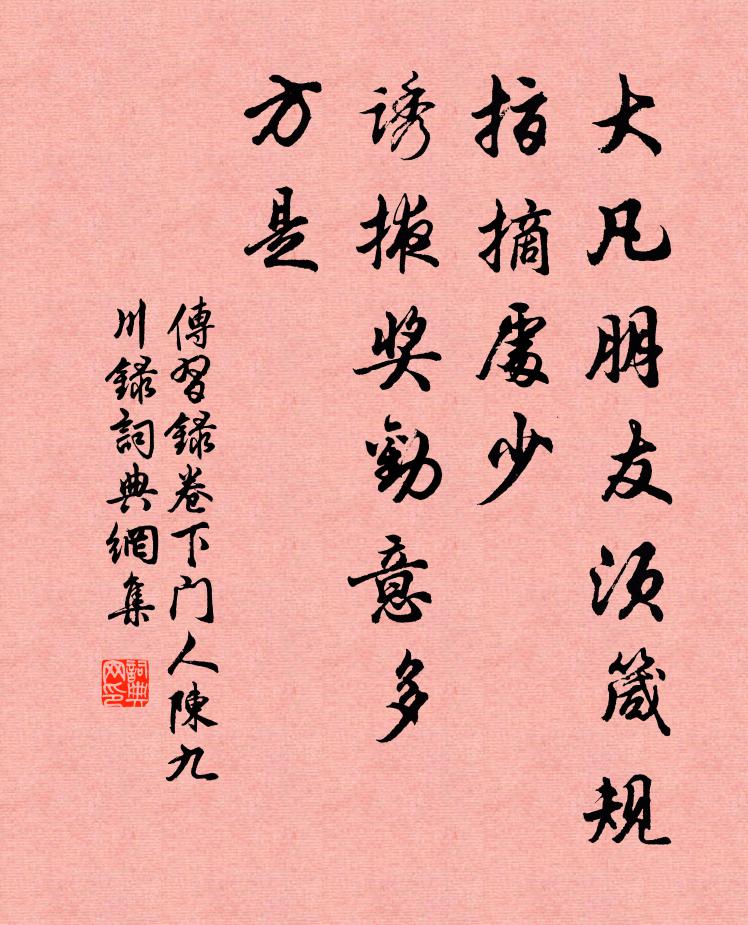 大凡朋友須箴規
指摘處少
誘掖奖勸意多
方是
傳習録卷下门人陳九
川録詞典網集
詞典
网印